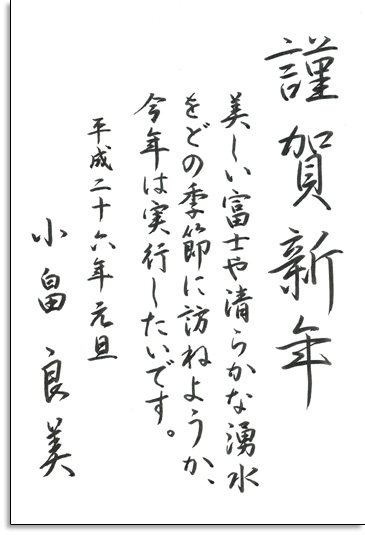 謹賀新年
美しい富士や清らかな湧水
をどの季節に訪ねようか、
今年は実行したいです。
平成二十六年元旦
小畠良美